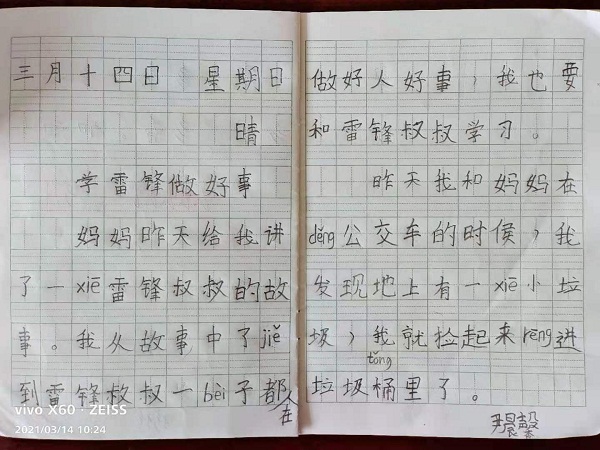 三月十四日 星期日
晴
学雷锋做好事
妈妈昨天给我讲
了一xiē雷锋叔叔的故
事。我从故事中了jiě
到雷锋叔叔一bèi子都在
做好人好事,我也要
和雷锋叔叔学习。
昨天我和妈妈在
děng公交车的时候,我
发现地上有一xiē小垃
圾,我就捡起来rēng进
tǒng
垃圾桶里了。
vivo X60 · ZEISS
2021/03/14 10:24